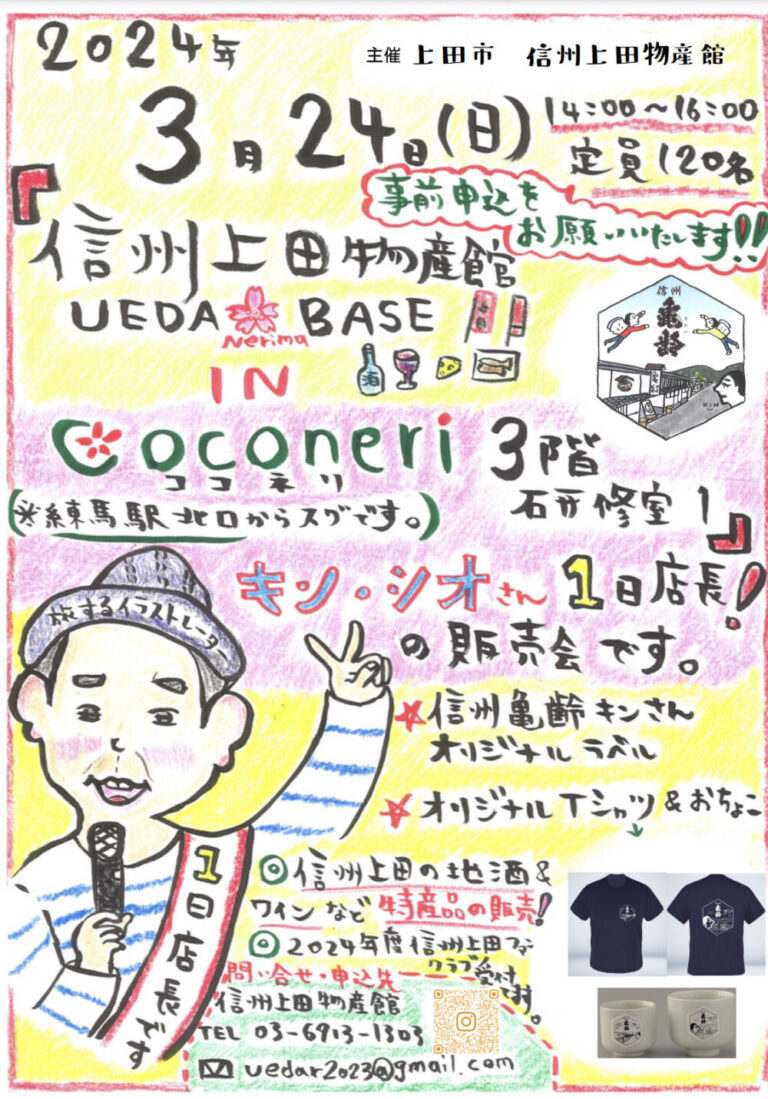 2024年
主催 上田市 信州上田物産館
3月24日(日)
14:00〜16:00
定員120名
事前申込を
お願いいたします!!
『信州上田物産館
UEDA BASE
Nerima
IN
信州
亀齢
KIN
coconeri 3階
ココネリ
研修室1』
(※練馬駅北口からスグです。)
キン・シオさん 1日店長!
の販売会です。
旅するイラストレーター
☆信州亀齢キンさん
オリジナルラベル
☆オリジナルTシャツ&おちょこ
1日店長です
◎信州上田の地酒&
ワインなど特産品の販売!
◎2024年度信州上田ファン
クラブ受付
問い合せ・申込先
信州上田物産館
TEL 03-6913-1303
uedar2023@gmail.com